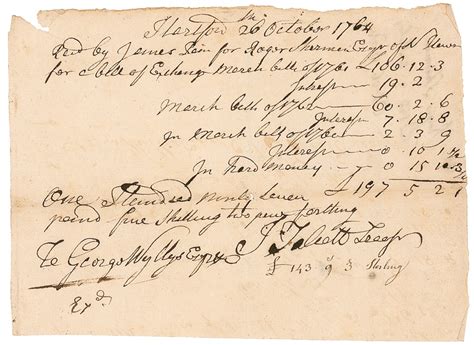 Hartford 26th October 1764
Recd by James Pain for Roger Sherman Esqr of N Haven
for a bill of Exchange March bills of 1761 £106-12-3
Interest 19.2
March bills of 1761 60.2.6
Interest 7.18.8
In March bills of 1761 2 3 9
Interest 0 10 1 1/2
In Hard Money 0 15 10 3/4
One Hundred ninty Seven £197 5 2 1
pound five Shelling two penc farthing
To George Wyllys Esqr J Talcott Treasr
£143 9 3 Sterling
Exd